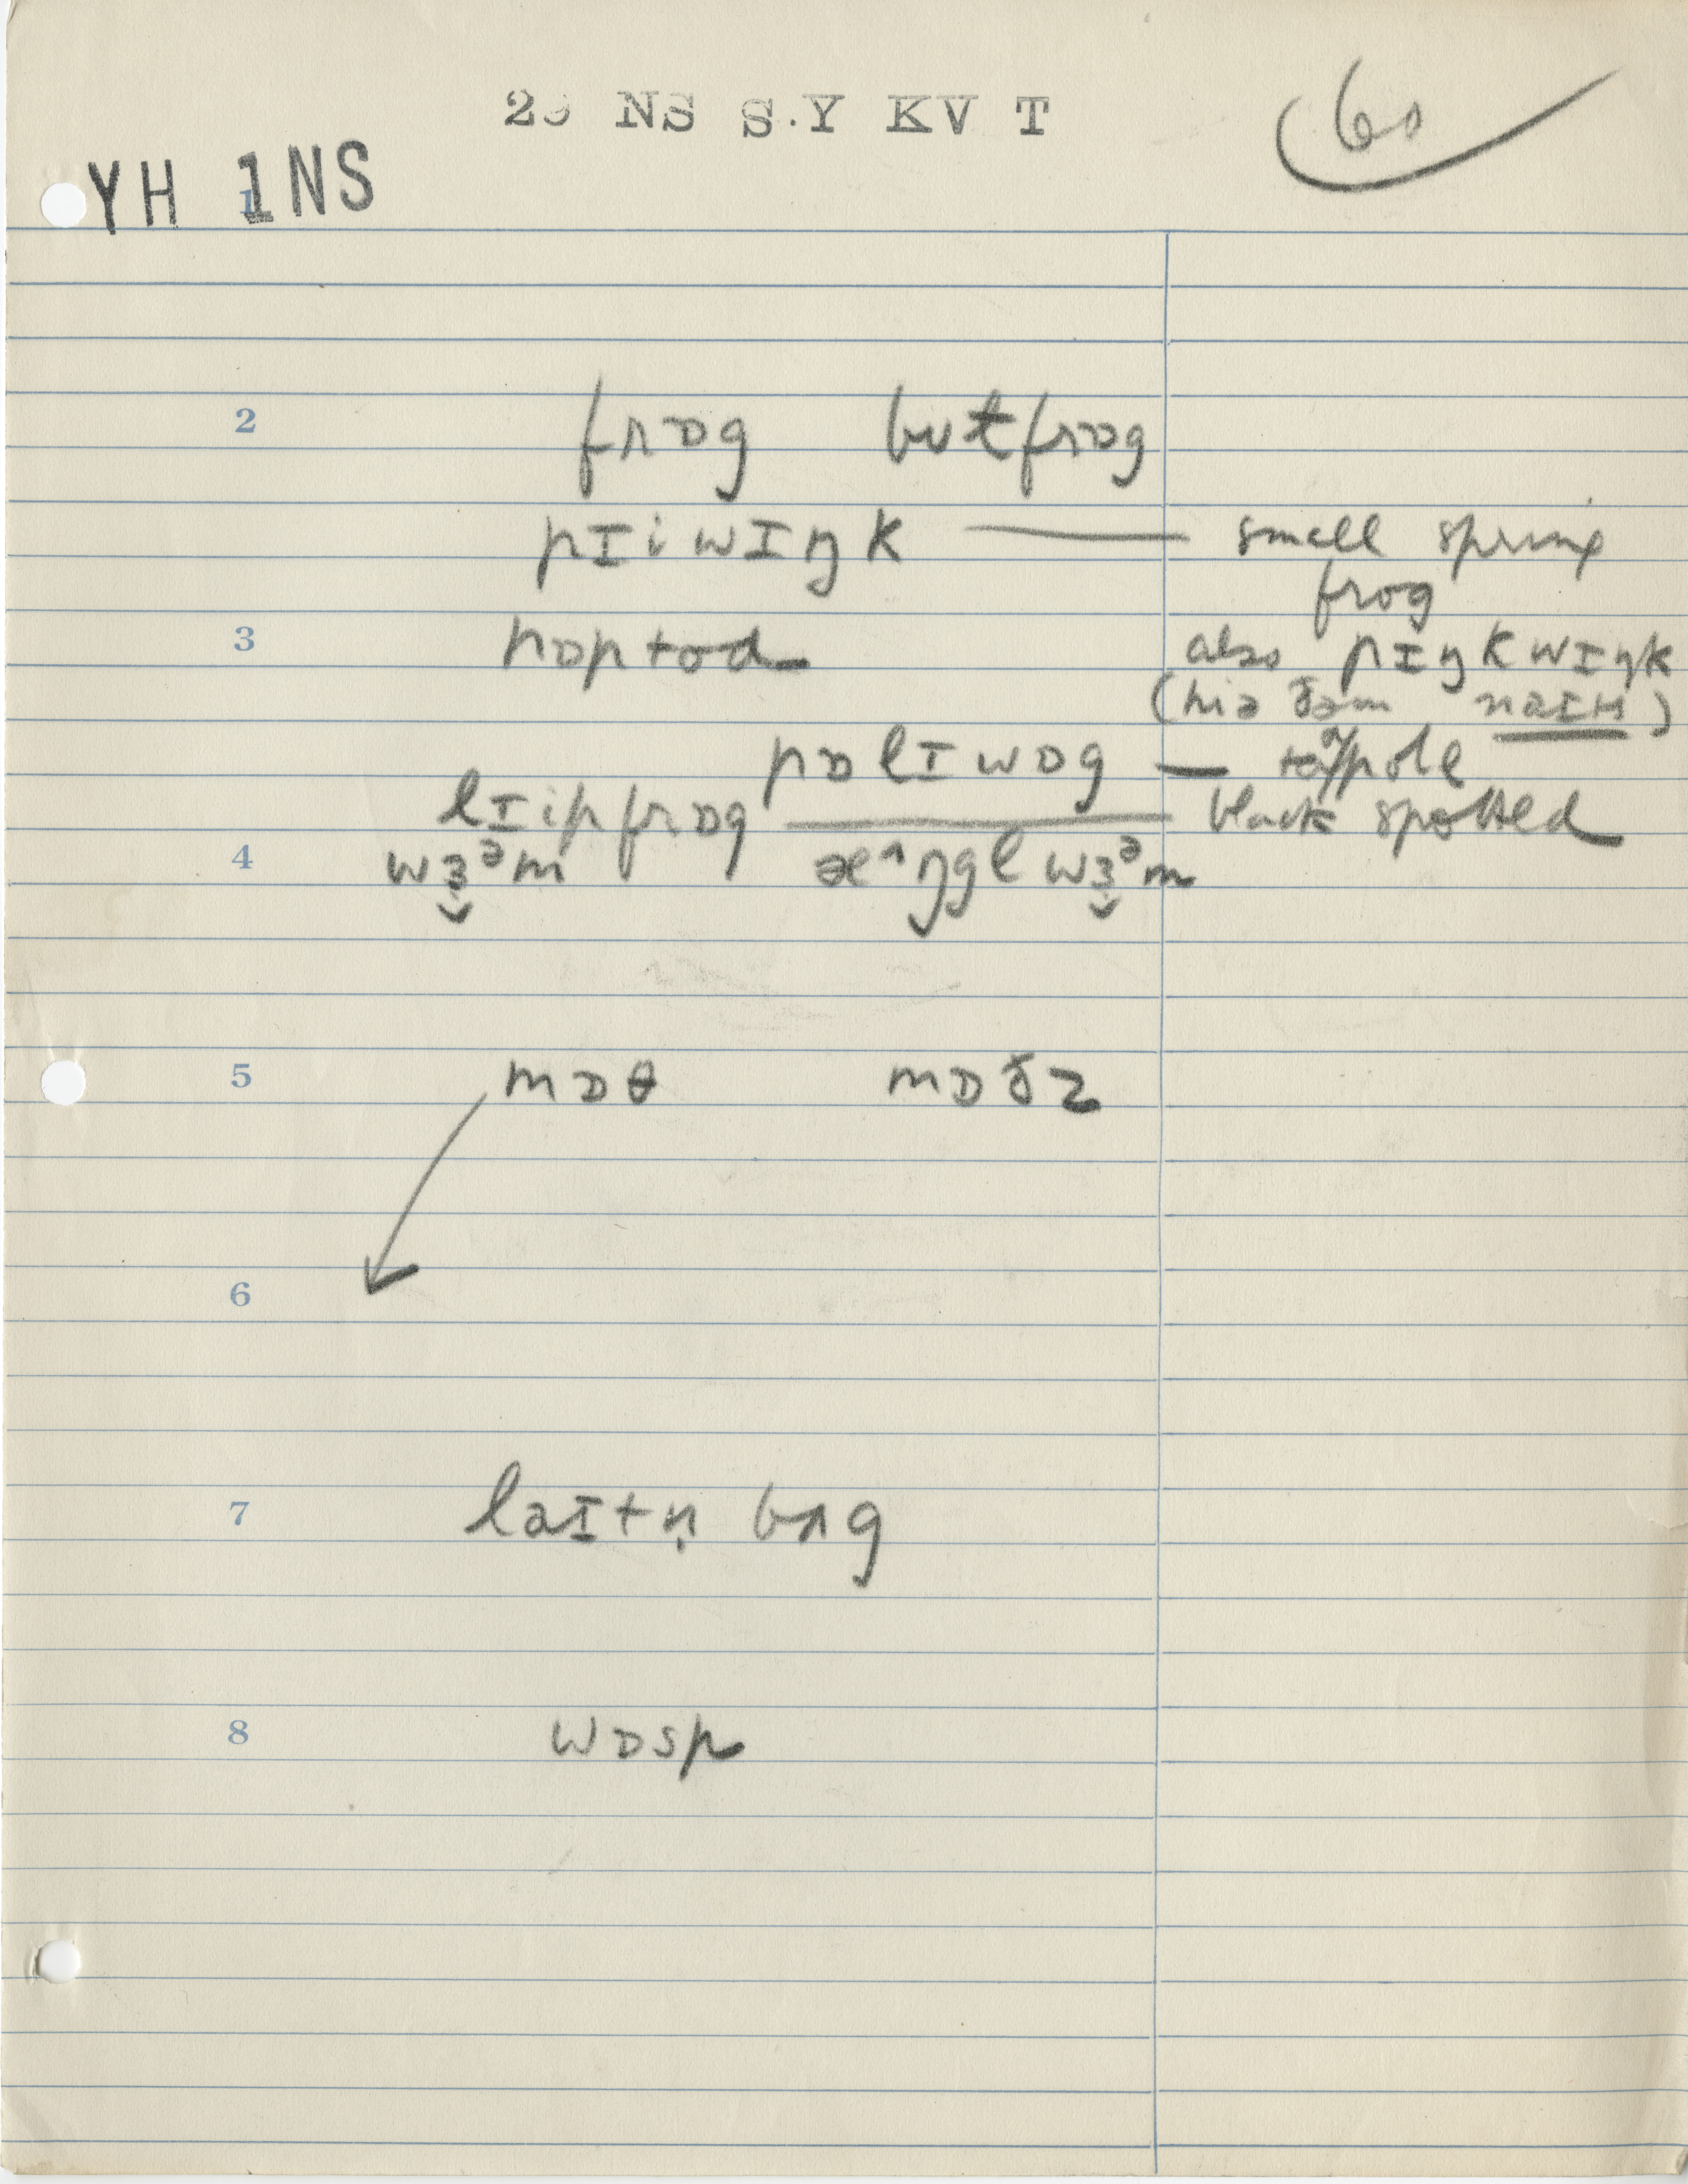 29 NS S.Y KV T
60
YH 1NS
1
2 frɒg bʊɫfrɒg
pɪiwɪŋk — small spring
frog
3 hɒptod also pɪŋkwɪŋk
(hiə ðəm naɪts)
pɒlɪwɒg — tadpole
lɪipfrɒg — black spotted
4 wɜᵊm æ^ŋgl wɜᵊm
5 mɒθ mɒðz
6
7 laɪtn̩ bʌg
8 wɒsp